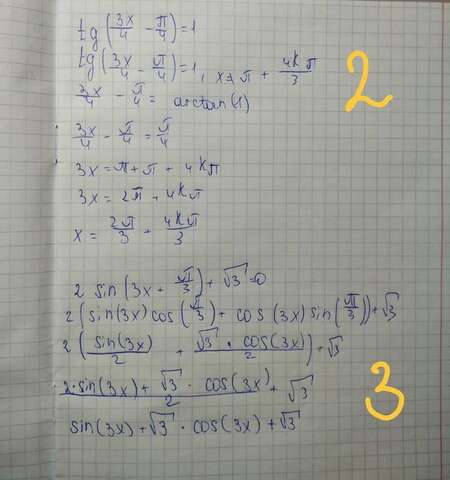 tg(3x/4 - π/4)=1
tg(3x/4 - π/4)=1, x≠π + 4kπ/3
3x/4 - π/4 = arctan(1)
3x/4 - π/4 = π/4
3x=π+π + 4kπ
3x = 2π + 4kπ
x = 2π/3 + 4kπ/3
2
2 sin(3x + π/3) + √3=0
2(sin(3x) cos(π/3) + cos(3x) sin(π/3))+√3
2(sin(3x)/2 + √3 · cos(3x)/2)+√3
2·sin(3x)+ √3 · cos(3x)/2 + √3
sin(3x)+√3 · cos(3x)+√3
3